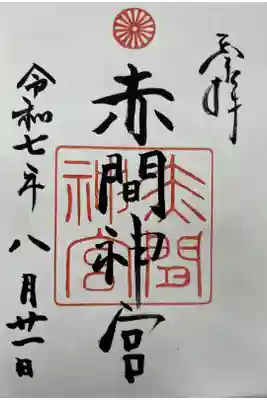 奉拝
赤間神宮
赤間
神宮
令和七年八月廿一日